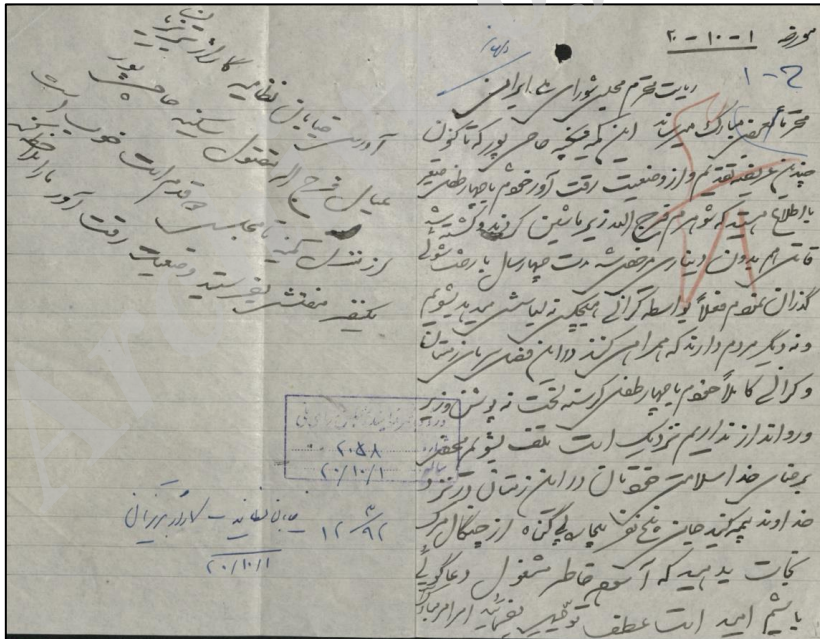 مورخه ۱-۱۰-۲۰
ریاست محترم مجلس شورای ملی ایران
محترماً بعرض مبارک میرساند این کمینه حاجی پور که تاکنون
چندین عریضه تقدیم و از وضعیت رقت آور خودم با چهار طفل صغیر
با اطلاع هستید که شوهرم فرج الله زیر ماشین کردند و کشته شد
قاتل هم بدون دیناری مرخص شد مدت چهار سال با رخت شوئی
گذران نمودم فعلاً بواسطه گرانی هیچکس نه لباسش میدهد بشویم
و نه دیگر مردم دارند که همراهی کنند در این فصل زمستان
و گرانی کاملاً خودم با چهار طفل گرسنه لخت نه پوشش و زیر
و روانداز نداریم نزدیک است تلف بشویم محض
رضای خدا سلامت خودتان در این زمستان در نزد
خداوند جان پنج نفر بیچاره بی گناه از چنگال مرگ
نجات بدهید که آسوده خاطر مشغول دعاگوئی
باشیم امید است عطف توجهی بفرمائید امر مبارک
آدرس خیابان نظامیه
عیال فرج الله مقتول سکینه حاجی پور
از منزل کمینه تا مجلس قدم است خوب است
یکنفر مفتش بفرستید وضعیت رقت آور ما را ملاحظه کند
۲۰۵۸
۲۰/۱۰/۱
۱۲ ۳/۹۲
خیابان نظامیه
۲۰/۱۰/۱